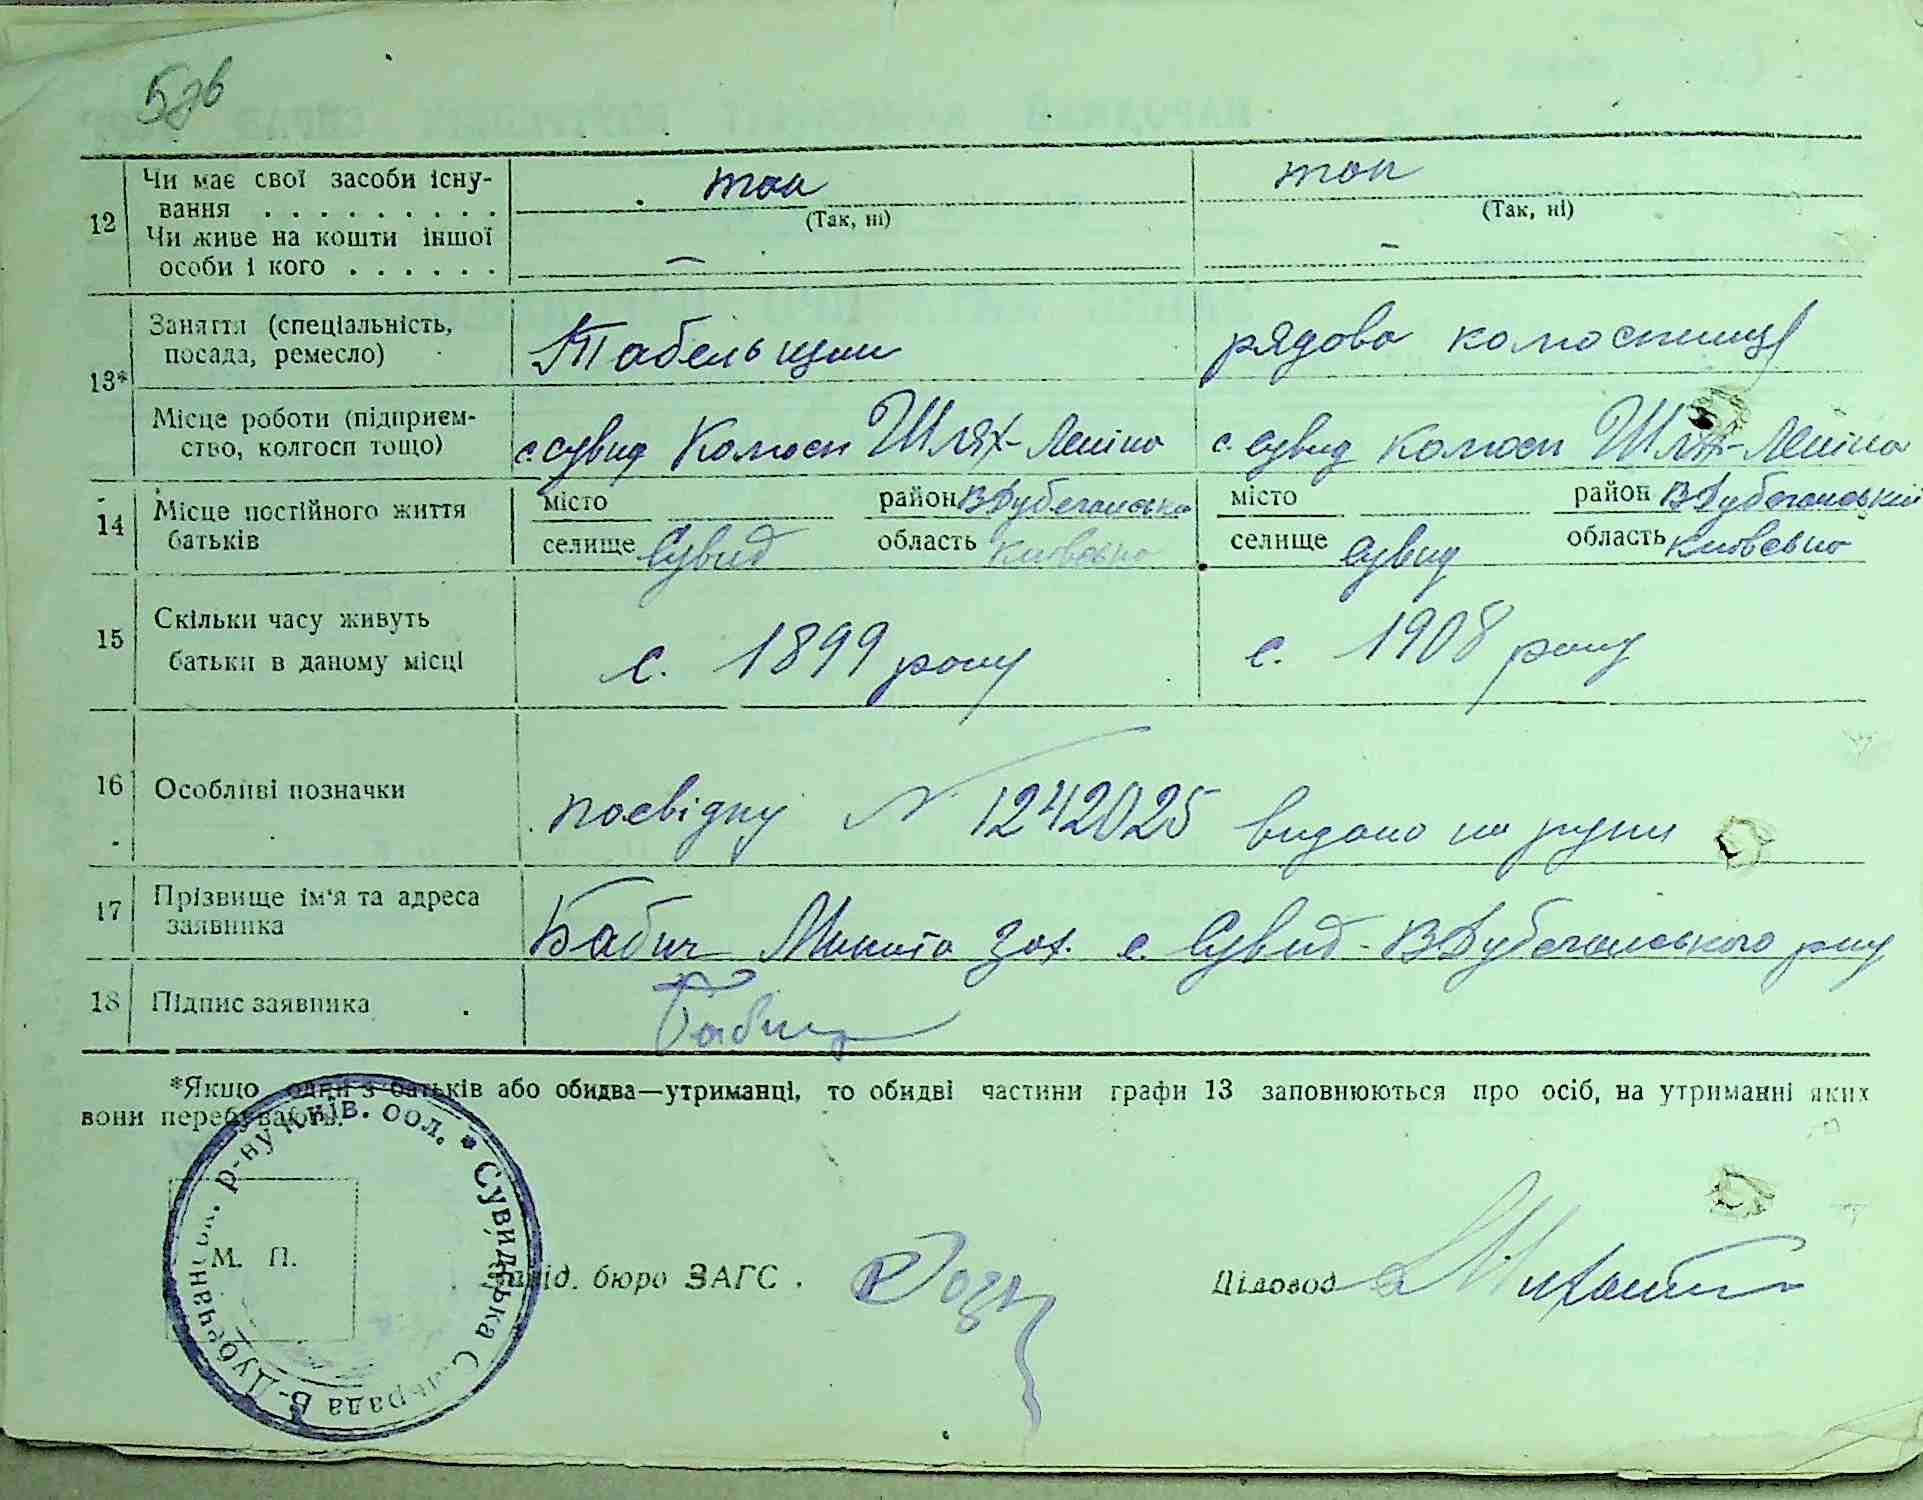 12 Чи має свої засоби існу- так так
вання . . . . . . . . . (Так, ні) (Так, ні)
Чи живе на кошти іншої — —
особи і кого . . . . . .
13* Заняття (спеціальність, Табельщик рядова колгоспниця
посада, ремесло)
Місце роботи (підприєм- с. Сувид Колгосп Шлях-Леніна с. Сувид Колгосп Шлях-Леніна
ство, колгосп тощо)
14 Місце постійного життя місто район ВДубечанськ місто район ВДубечанський
батьків селище Сувид область Київська селище Сувид область Київська
15 Скільки часу живуть с. 1899 року с. 1908 року
батьки в даному місці
16 Особливі позначки посвідку N 1242025 видано на руки
17 Прізвище ім'я та адреса Бабич Микита Зах. с. Сувид-ВДубечанського р-ну
заявника
18 Підпис заявника Бабич
*Якщо один з батьків або обидва—утриманці, то обидві частини графи 13 заповнюються про осіб, на утриманні яких
вони перебувають.
Сувидська Сільрада В-Дубечанськ. р-ну Київ. обл. *
М. П. Завід. бюро ЗАГС . Діловод